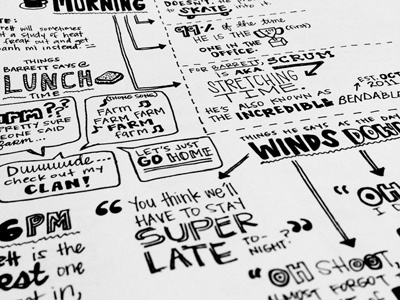 MORNING
will sometimes
a study of heat
freak out and get
banh mi instead.
THINGS
BARRETT SAYS @
LUNCH
TIME
PRETTY SURE
SOMEONE SAID
Barm...
(THONG SONG)
FARM
FARM FARM
FARM
farm
Duuuuude...
check out my
CLAN!
LET'S JUST
GO HOME
DOESN'T
TO SKATE
99% of the time
HE IS THE (first)
ONE IN THE
OFFICE
FOR BARRETT, SCRUM
IS A.K.A.
STRETCHING
TIME
HE'S ALSO KNOWN AS
THE INCREDIBLE BENDABLE
EST. OCT
THINGS HE SAYS AS THE DAY
WINDS DOWN
6 PM
is the
best one
in,
"You think we'll
HAVE TO STAY
SUPER
LATE TO-
NIGHT?"
"OH
I
"OH SHOOT,
ALMOST FORGOT